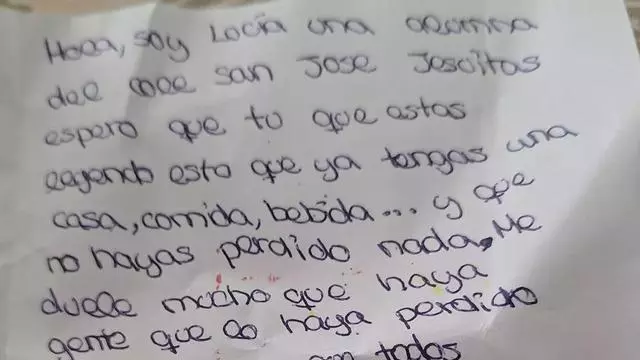 Hola, soy Lucía una alumna
del cole san Jose Jesuitas
espero que tu que estas
leyendo esto que ya tengas una
casa, comida, bebida... y que
no hayas perdido nada, Me
duele mucho que haya
gente que lo haya perdido
todos